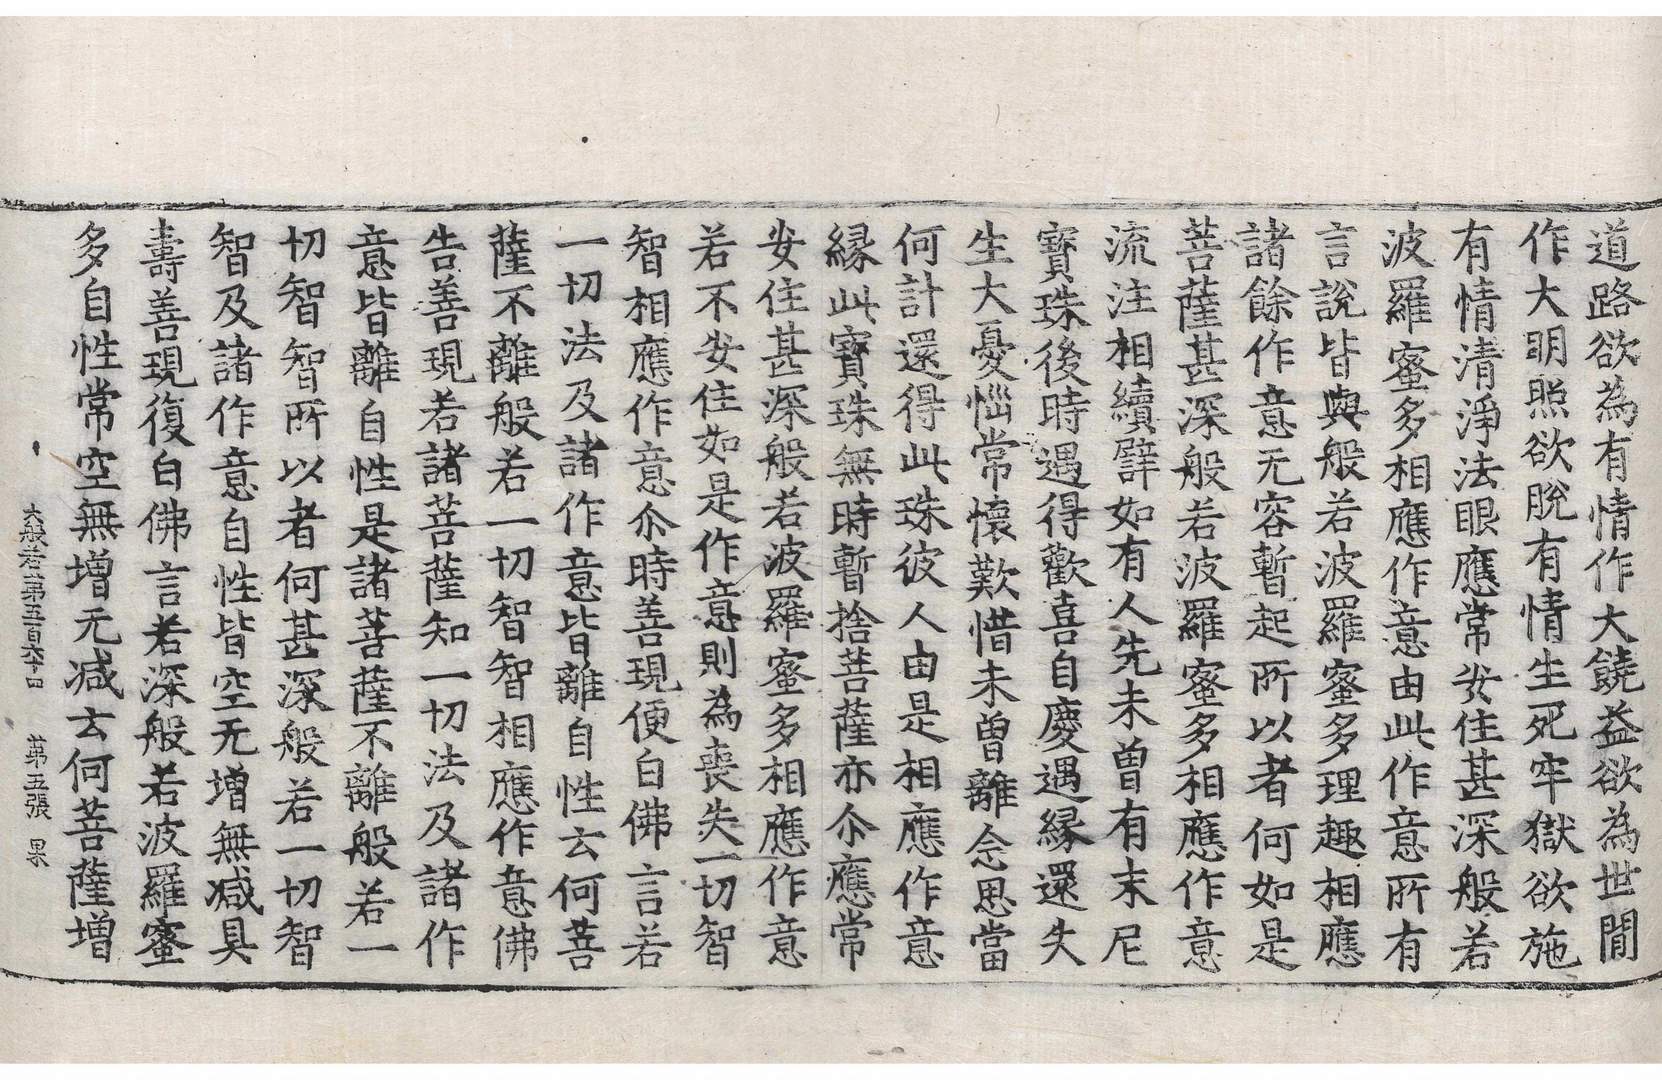 道路欲為有情作大饒益欲為世間
作大明照欲脫有情生死牢獄欲施
有情清淨法眼應常安住甚深般若
波羅蜜多相應作意由此作意所有
言說皆與般若波羅蜜多理趣相應
諸餘作意无容暫起所以者何如是
菩薩甚深般若波羅蜜多相應作意
流注相續譬如有人先未曾有末尼
寶珠後時遇得歡喜自慶遇緣還失
生大憂惱常懷歎惜未曾離念思當
何計還得此珠彼人由是相應作意
緣此寶珠無時暫捨菩薩亦尒應常
安住甚深般若波羅蜜多相應作意
若不安住如是作意則為喪失一切智
智相應作意尒時善現便白佛言若
一切法及諸作意皆離自性云何菩
薩不離般若一切智智相應作意佛
告善現若諸菩薩知一切法及諸作
意皆離自性是諸菩薩不離般若一
切智智所以者何甚深般若一切智
智及諸作意自性皆空无增無減具
壽善現復白佛言若深般若波羅蜜
多自性常空無增无減云何菩薩增
大般若第五百六十四 第五張 果